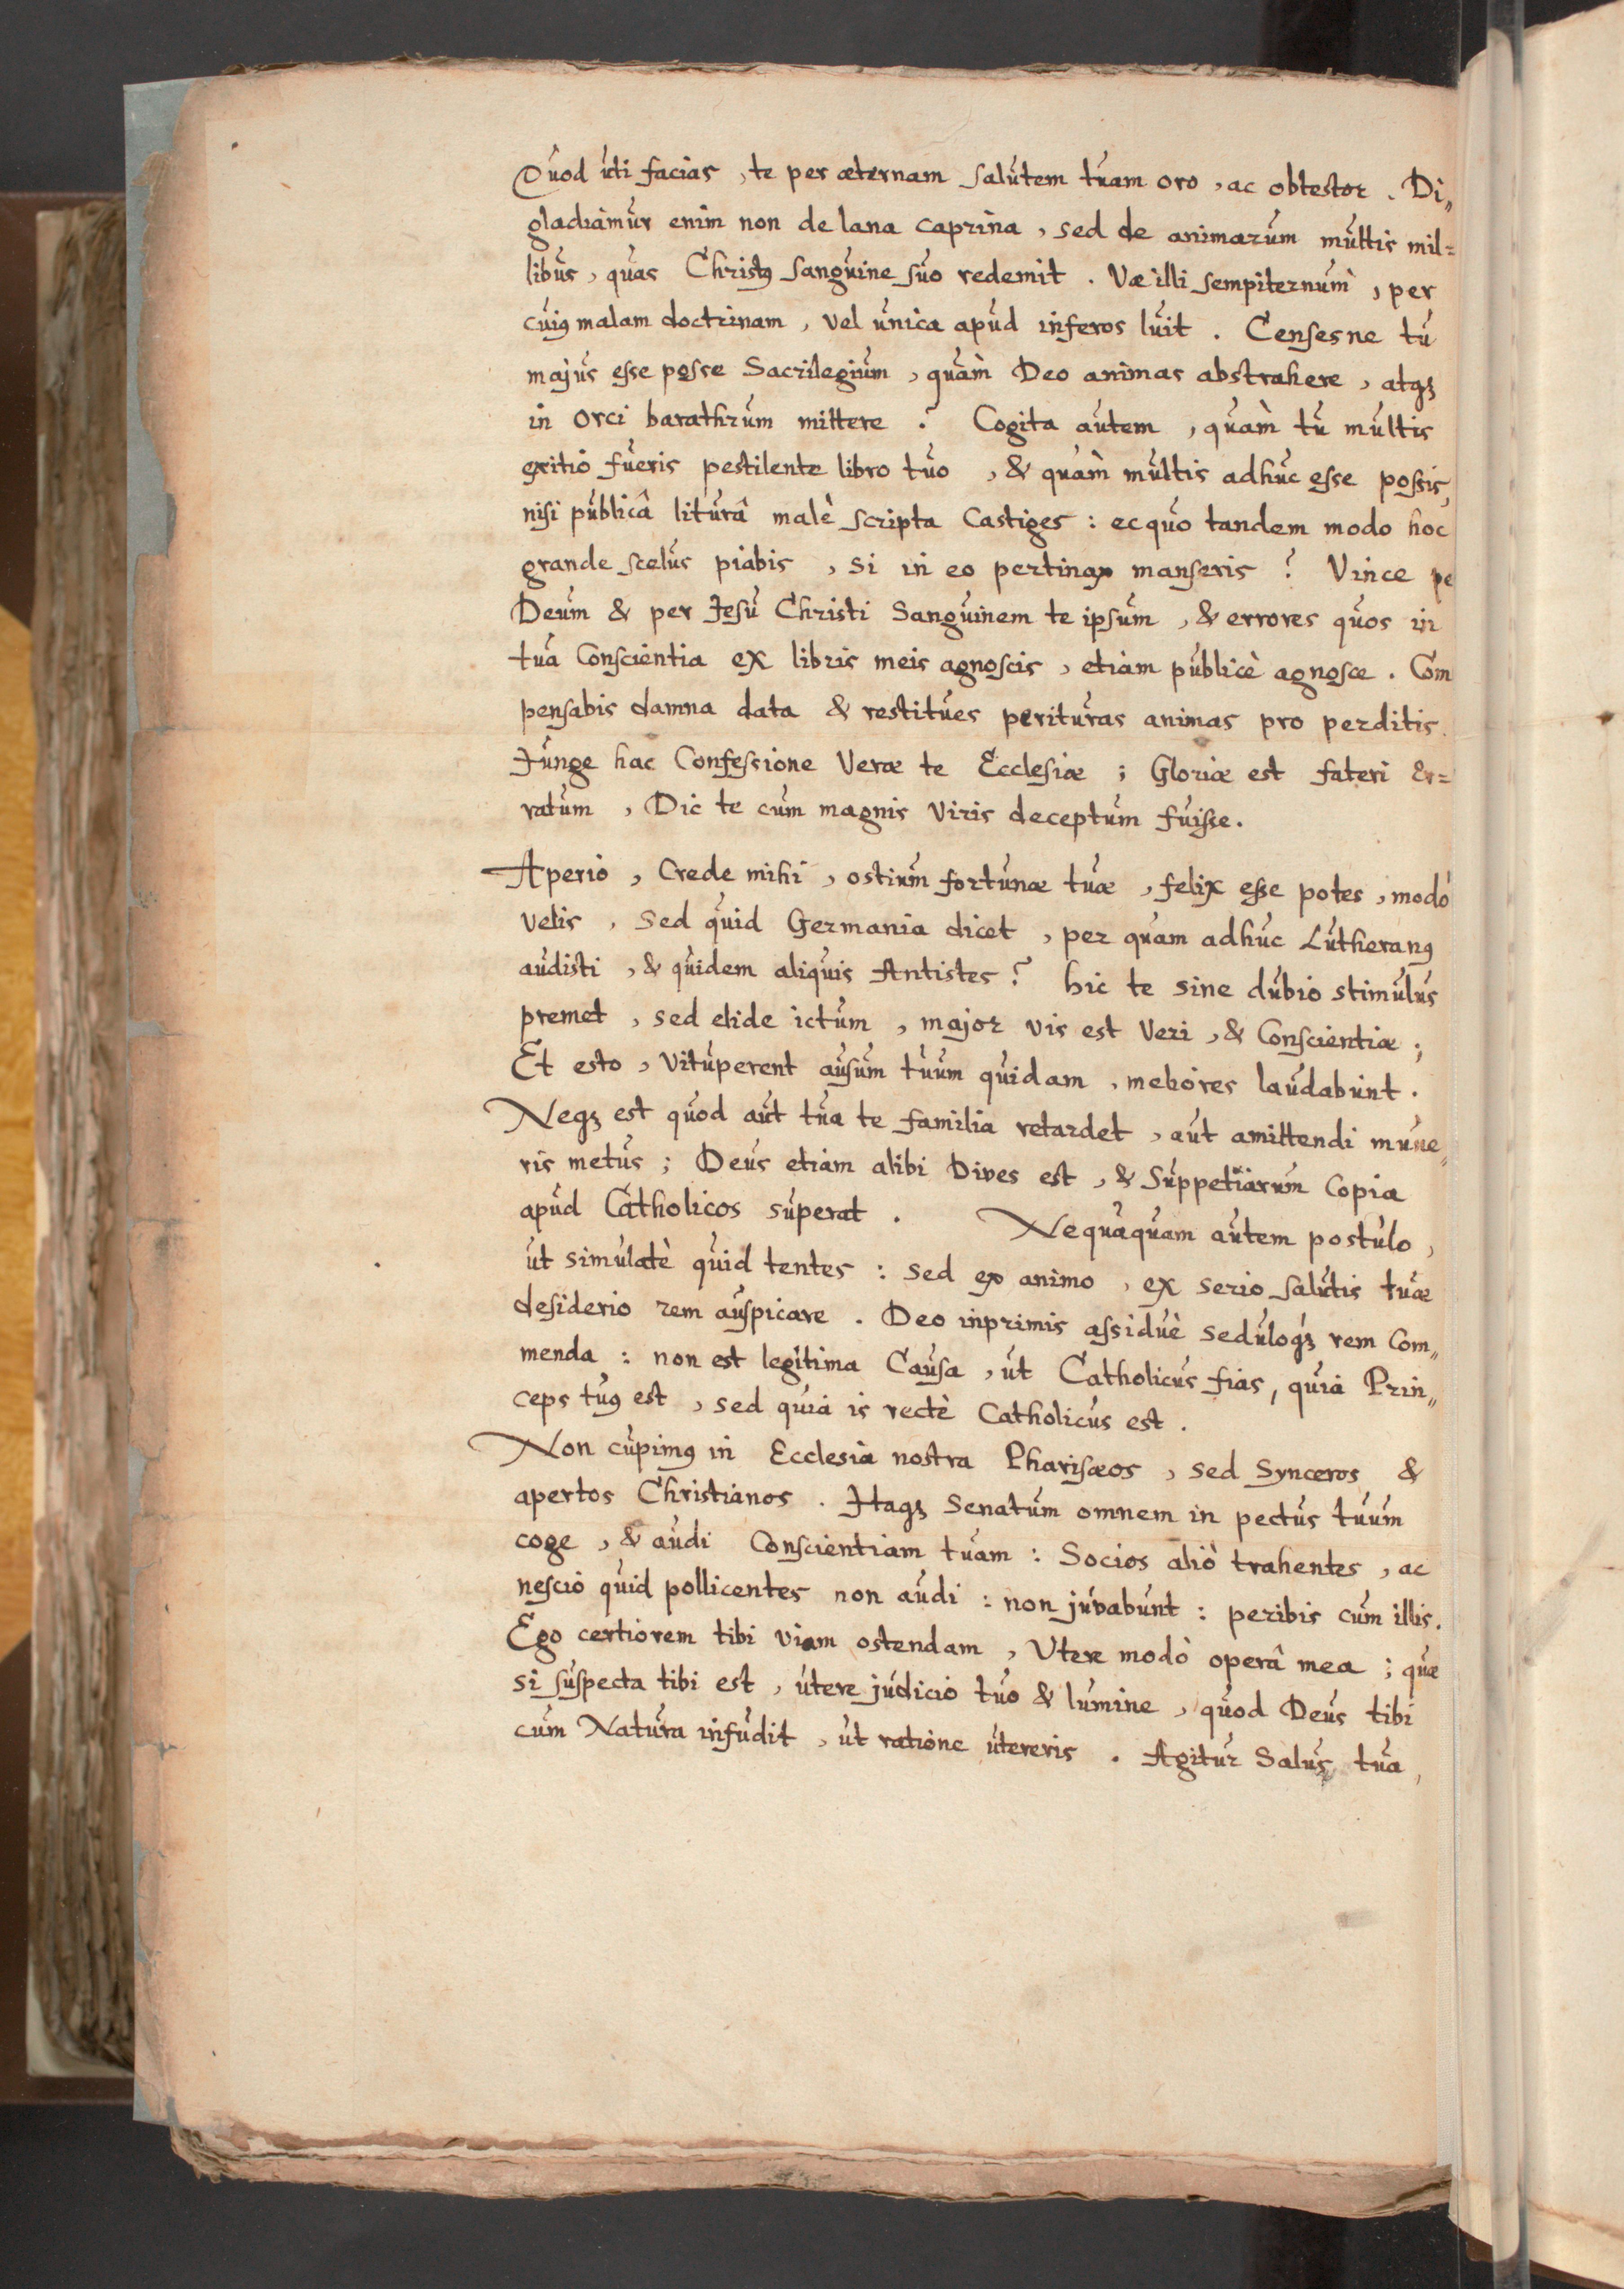 Quod uti facias, te per æternam salutem tuam oro, ac obtestor. Di„
gladiamur enim non de lana caprina, sed de animarum multis mil=
libus, quas Christꝰ sanguine suo redemit. Væ illi sempiternum, per
cuiꝰ malam doctrinam, vel unica apud inferos luit. Censesne tu
majus esse posse Sacrilegium, quàm Deo animas abstrahere, atqꝫ
in orci barathrum mittere? Cogita autem, quàm tu multis
exitio fueris pestilente libro tuo, & quàm multis adhuc esse possis,
nisi publicâ liturâ malè scripta Castiges: ecquo tandem modo hoc
grande scelus piabis, si in eo pertinax manseris? Vince pe
Deum & per Jesu Christi Sanguinem te ipsum, & errores quos in
tua Conscientia ex libris meis agnoscis, etiam publicè agnosce. Com
pensabis damna data & restitues perituras animas pro perditis.
Junge hac Confessione Veræ te Ecclesiæ; Gloriæ est fateri Er=
ratum, Dic te cum magnis Viris deceptum fuisse.
Aperio, Crede mihi, ostium fortunæ tuæ, felix esse potes, modò
velis, Sed quid Germania dicet, per quam adhuc Lutheranꝰ
audisti, & quidem aliquis Antistes? hic te sine dubio stimulus
premet, sed elide ictum, major vis est Veri, & Conscientiæ;
Et esto, Vituperent ausum tuum quidam, meliores laudabunt.
Neqꝫ est quod aut tua te familia retardet, aut amittendi mune„
ris metus; Deus etiam alibi Dives est, & Suppetiarum Copia
apud Catholicos superat. Nequaquam autem postulo,
ut simulatè quid tentes: sed ex animo, ex serio salutis tuæ
desiderio rem auspicare. Deo inprimis assiduè seduloqꝫ rem Com„
menda: non est legitima Causa, ut Catholicus fias, quia Prin„
ceps tuꝰ est, sed quia is rectè Catholicus est.
Non cupimꝰ in Ecclesia nostra Pharisæos, sed Synceros &
apertos Christianos. Itaqꝫ Senatum omnem in pectus tuum
coge, & audi Conscientiam tuam: Socios aliò trahentes, ac
nescio quid pollicentes non audi: non juvabunt: peribis cum illis.
Ego certiorem tibi viam ostendam, Utere modò operâ mea; quæ
si suspecta tibi est, utere judicio tuo & lumine, quod Deus tibi
cum Natura infudit, ut ratione utereris. Agitur Salus tua,